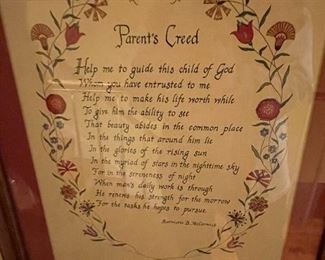 Parent's Creed
Help me to guide this child of God
Whom you have entrusted to me
Help me to make his life worth while
To give him the ability to see
That beauty abides in the common place
In the things that around him lie
In the glories of the rising sun
In the myriad of stars in the nighttime sky
For in the sereneness of night
When man's daily work is through
He renews his strength for the morrow
For the tasks he hopes to pursue.
B. McCormick